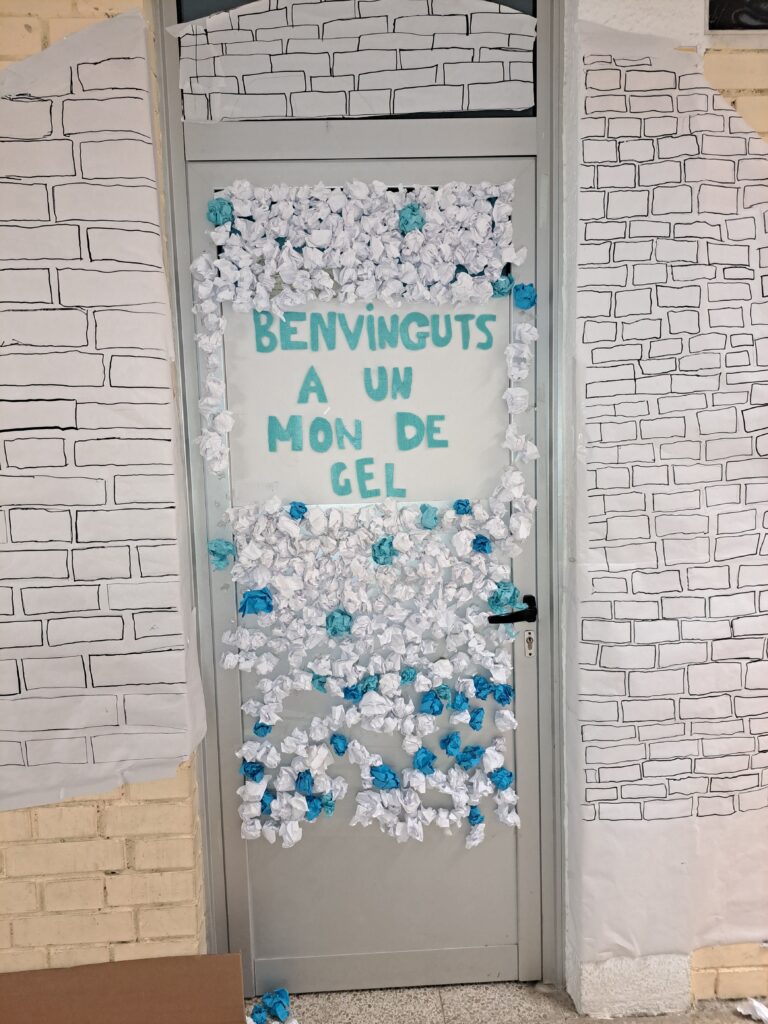 BENVINGUTS
A UN
MON DE
GEL